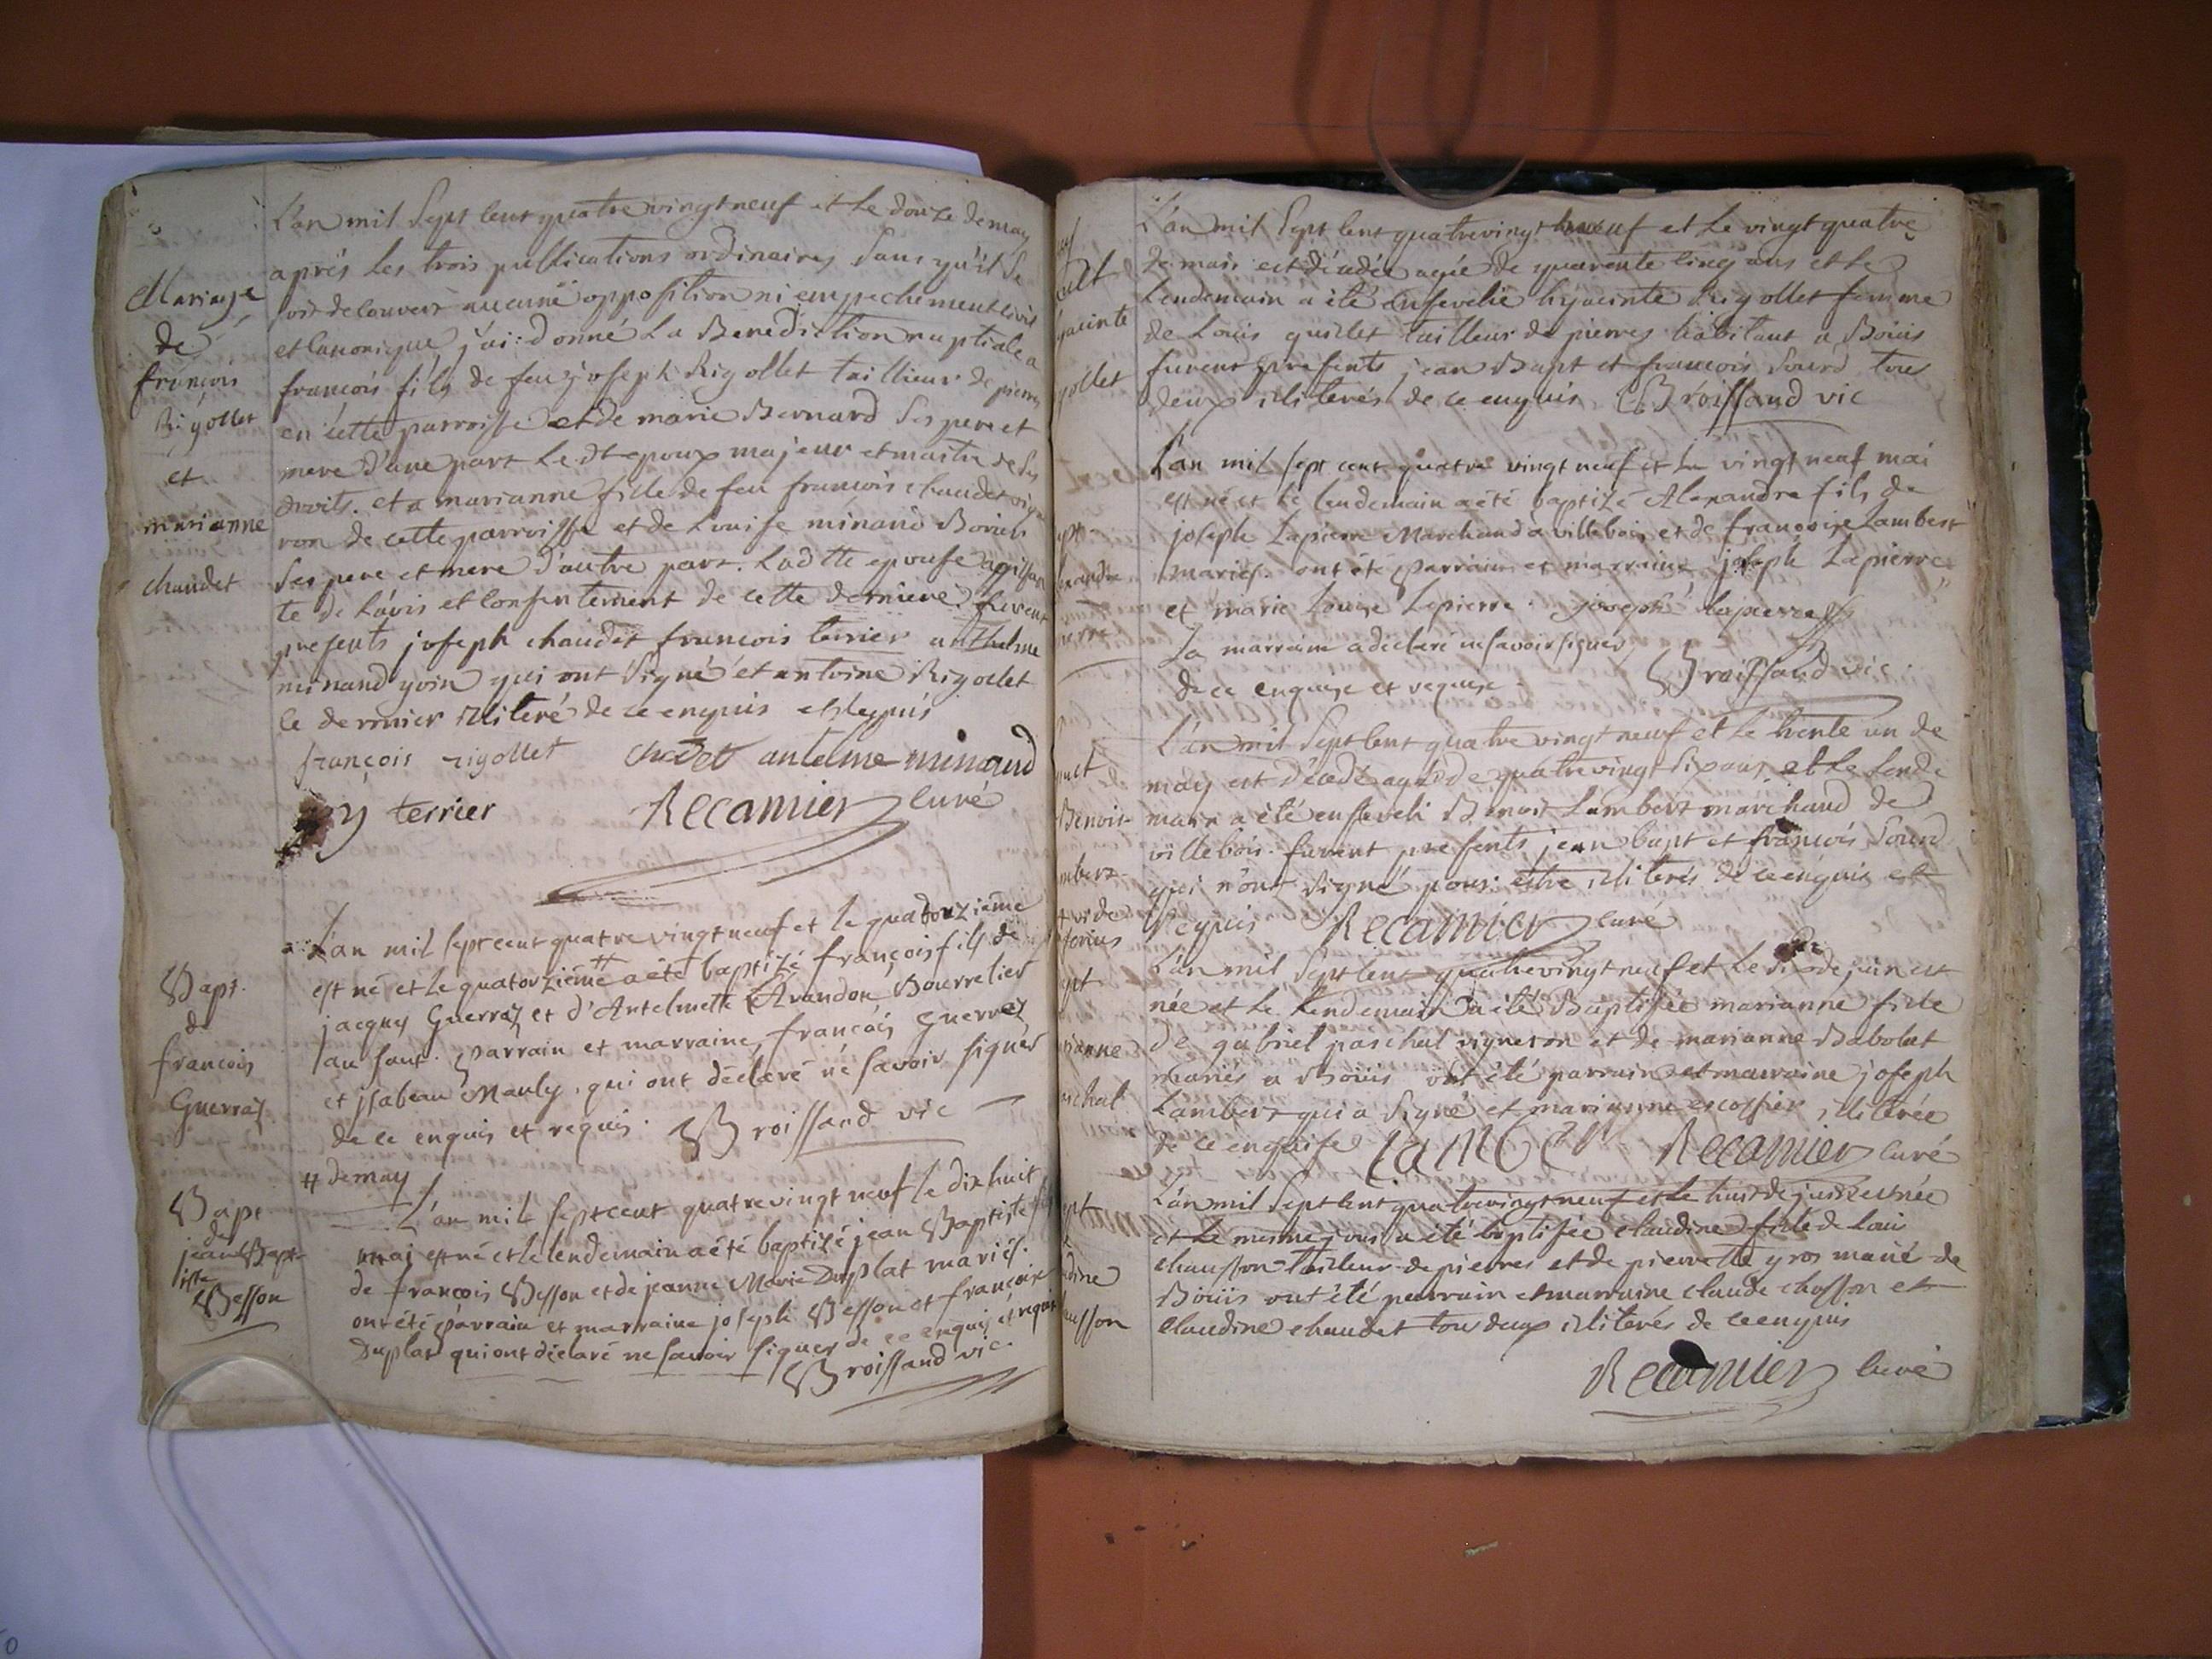 L'an mil Sept Cent quatre vingt neuf et le douze de may
aprés les trois publications ordinaires Sans qu'il Se
soit decouvert aucune opposition ni empechement civil
et Canonique j'ai donné La Benediction nuptiale a
francois fils de feu joseph Rigollet taillieur de pierres
en cette parroisse et de marie Bernard Ses pere et
mere d'une part Le dt epoux majeur et maitre de Ses
droits. et a marianne fille de feu francois chaudet vigne
ron de cette parroisse et de Louise minand
Ses pere et mere d'autre part. Ladtte epouse
te de L'avis et Consentement de cette derniere. furent
presents joseph chaudet francois terrier anthelme
minand yvin qui ont Signé et antoine Rigollet
le dernier illiteré de ce enquis et Requis
françois rigollet chodett antelme minand
terrier Recamier Curé
Mariage
de
francois
Rigollet
et
marianne
chaudet
L'an mil sept cent quatre vingt neuf et le quatorzieme
est né et le quatorzieme # a été baptizé françois fils de
jacques Guerraz et d'Antelmette Arandon Bourrelier
au saut. parrain et marraine, francois guerraz
et jsabeau Mauly, qui ont déclaré né savoir signer
de ce enquis et requis. Broissand vic
# de may
Bapt.
de
francois
Guerraz
L'an mil sept cent quatre vingt neuf le dix huit
mai est né et le lendemain a été baptizé jean Baptiste fils
de françois Besson et de jeanne Marie Duplat mariés.
ont été parrain et marraine joseph Besson et françoise
Duplat qui ont déclaré ne savoir signer de ce enquis et requis
Broissand vic.
Bapt
de
jean Bapt
iste
Besson
L'an mil Sept Cent quatre vingt neuf et Le vingt quatre
de mai est décédée agée de quarente Cinq ans et Le
Lendemain a été ensevelie hyacinte Rigollet femme
de Louis quillet tailleur de pierres habitant a Boüis
furent presents jean Bapt et francois Sourd tous
deux illiterés de ce enquis Broissand vic
L'an mil sept cent quatre vingt neuf et le vingt neuf mai
est né et le lendemain a été baptizé Alexandre fils de
joseph Lapierre Marchand a villebois et de françoise Lambert
mariés. ont été parrain et marraine joseph Lapierre
et marie Louise Lapierre. joseph lapierre
La marraine a déclaré ne savoir signer
de ce enquise et requise. Broissand vic.
L'an mil Sept Cent quatre vingt neuf et Le trente un de
may est décédé agé de quatre vingt Six ans et Le Lende
main a été enseveli Benoit Lambert marchand de
villebois. furent presents jean bapt et francois Sourd
qui n'ont Signé pour estre illiterés de ce enquis et
Requis Recamier Curé
L'an mil Sept Cent quatre vingt neuf et Le Six de juin est
née et Le Lendemain a été Baptisée marianne fille
de gabriel paschal vigneron et de marianne Babolat
mariés a Boüis ont été parrain et marraine joseph
Lambert qui a Signé et marianne escoffier illiterée
de ce enquise Lambert Recamier Curé
L'an mil Sept Cent quatre vingt neuf et Le huit de juin est née
et Le mesme jour a été baptisée claudine fille de Louis
chausson tailleur de pierres et de pierrette gros marié de
Boüis ont été parrain et marraine claude chosson et
claudine chaudet tous deux illiterés de ce enquis
Recamier Curé